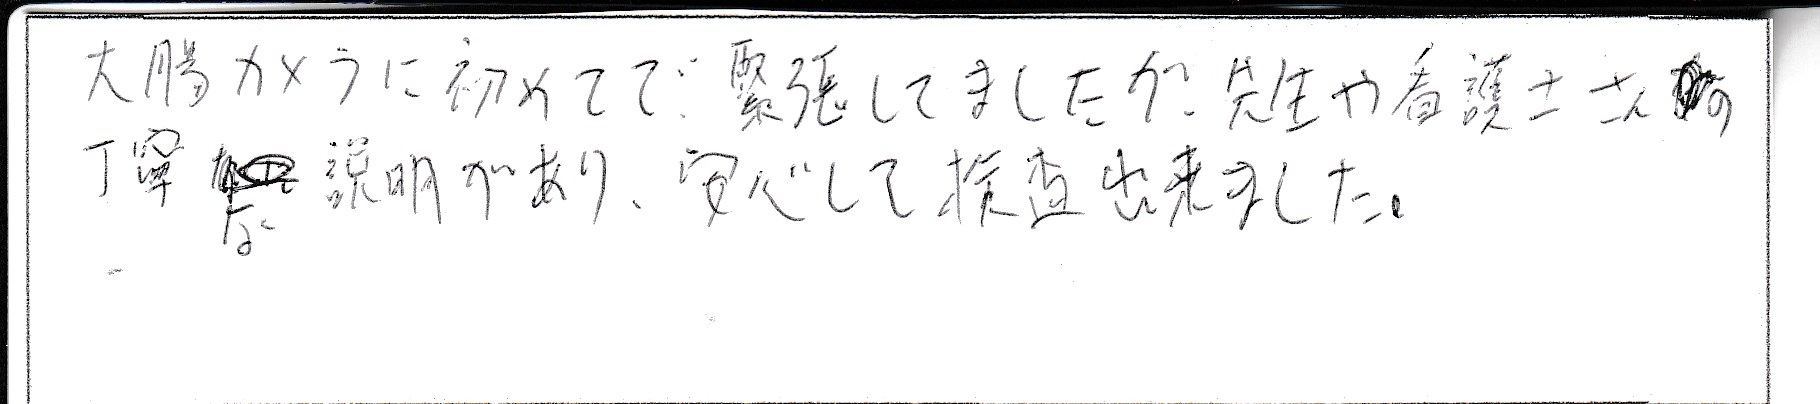 大腸カメラに初めてで緊張してましたが、先生や看護士さんの
丁寧な説明があり、安心して検査出来ました。